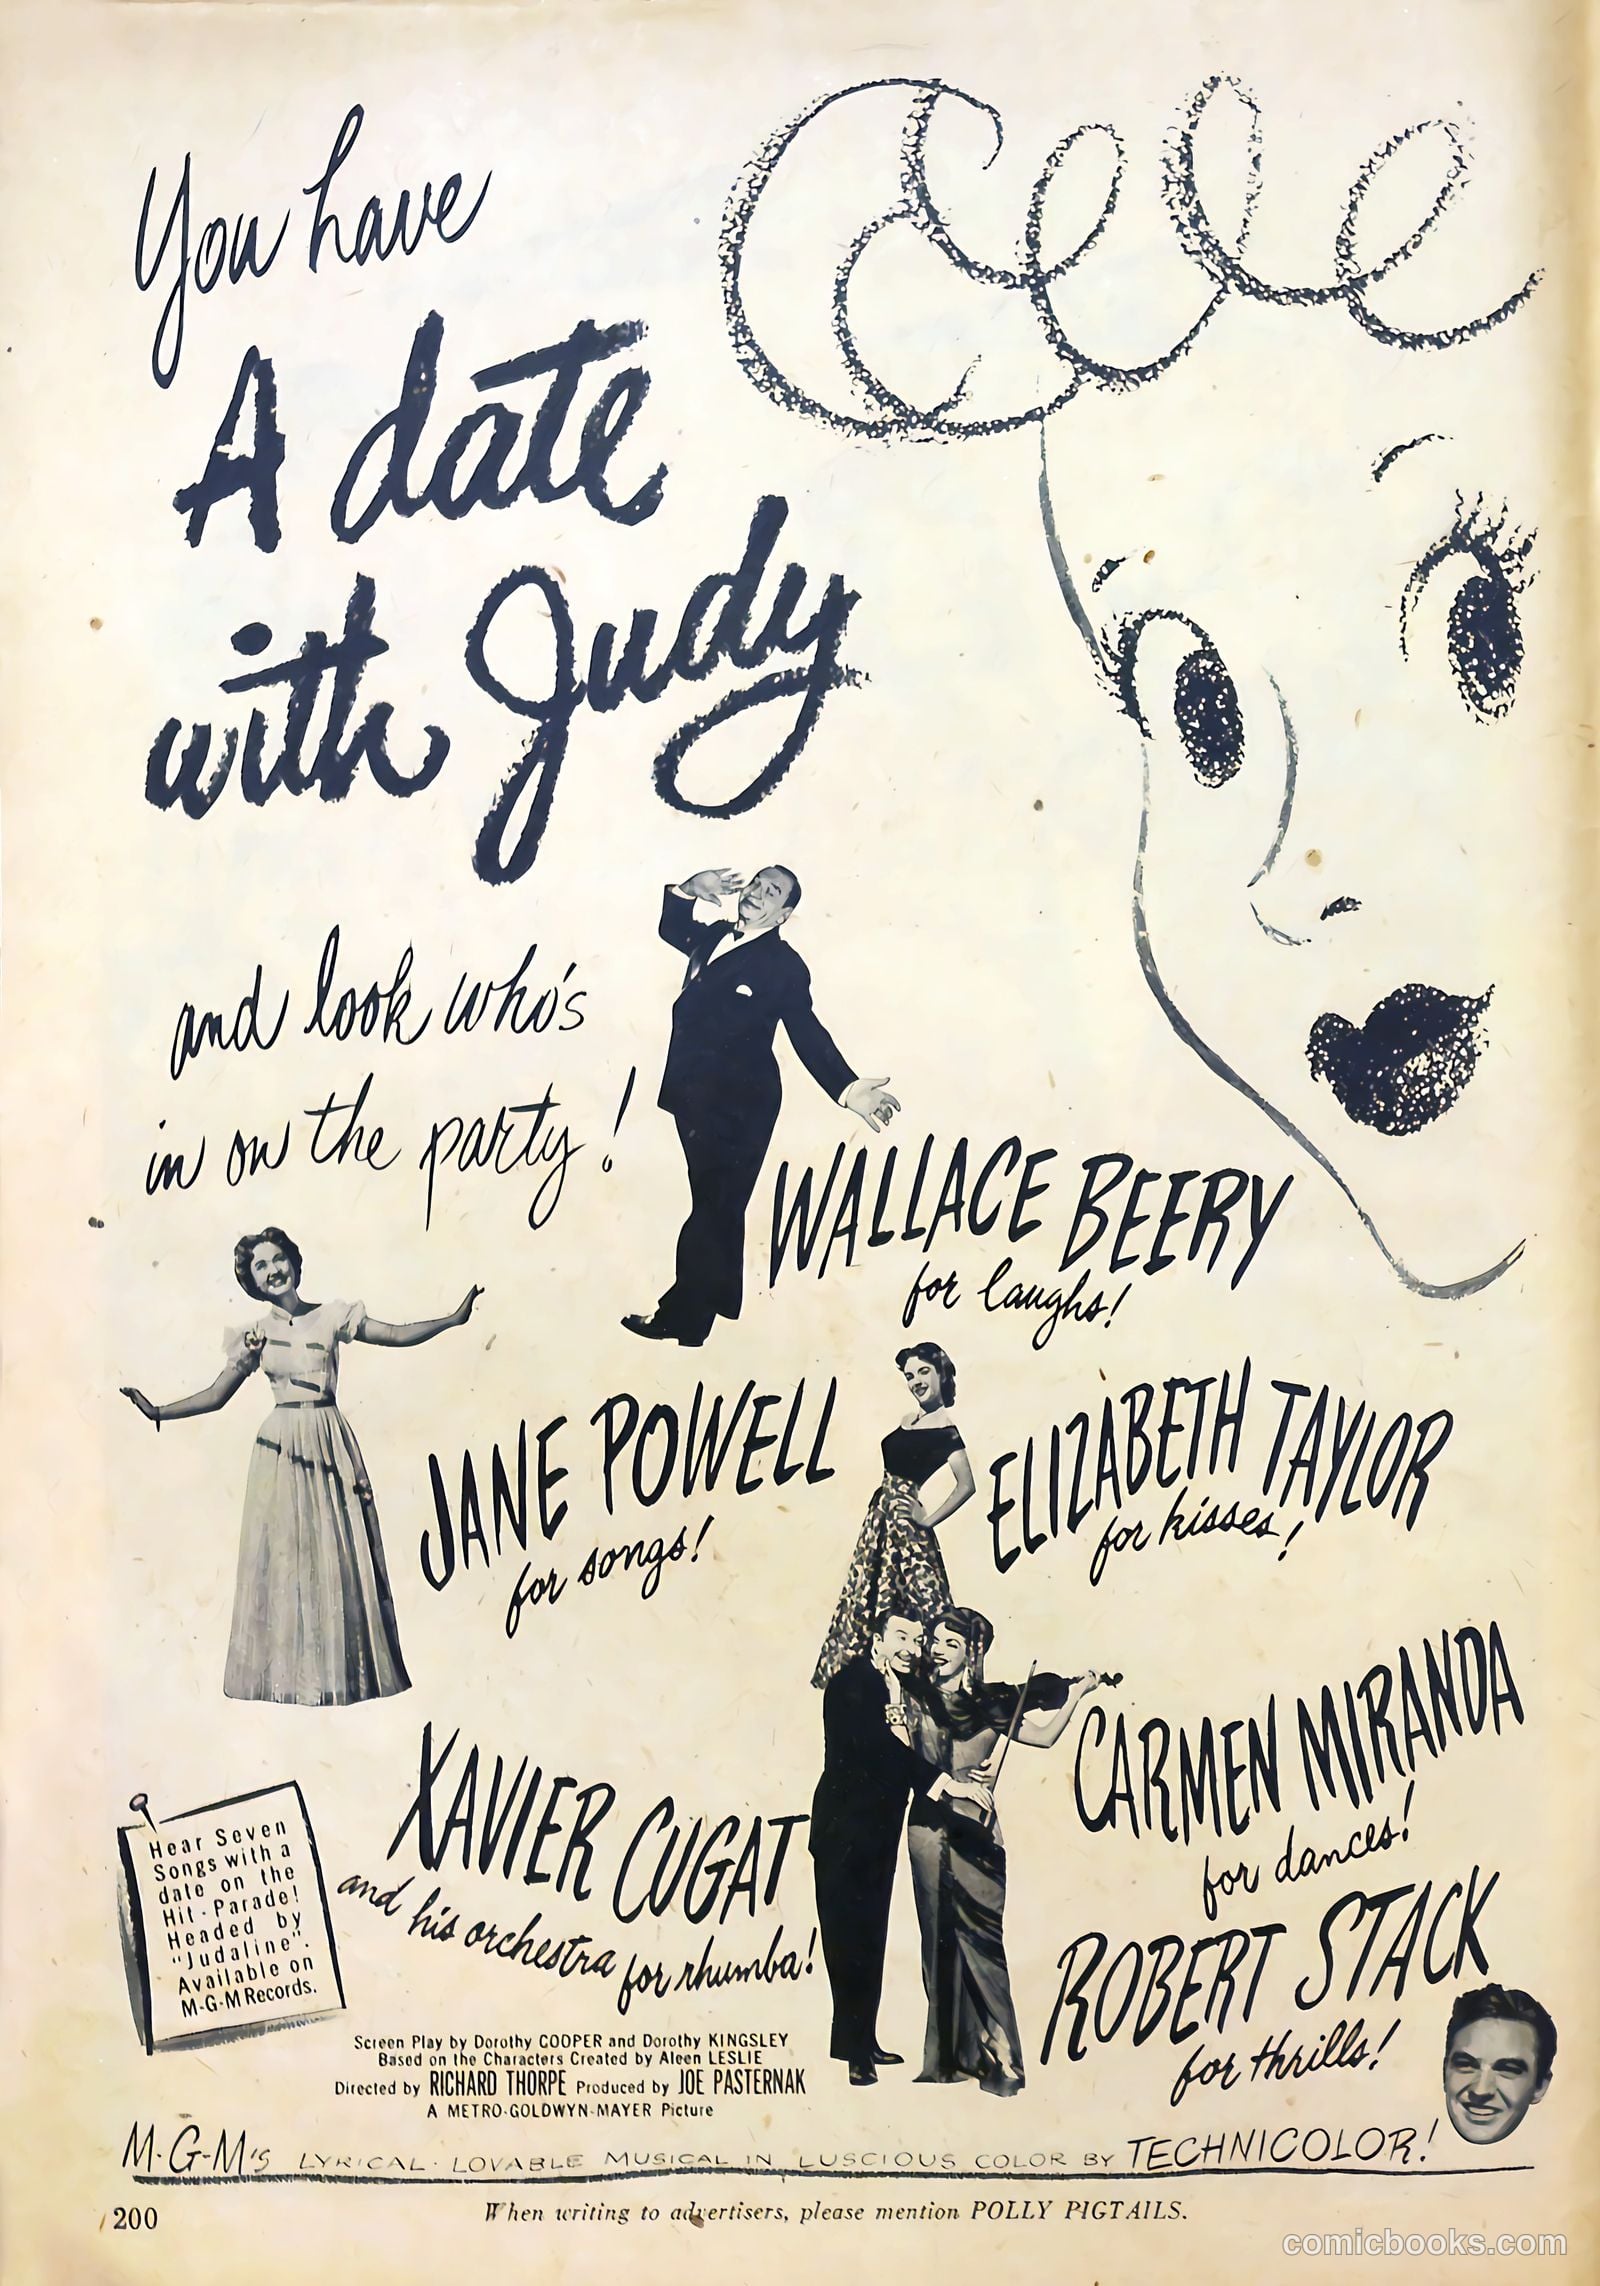 You have
A date
with Judy
and look who's
in on the party!
WALLACE BEERY
for laughs!
JANE POWELL
for songs!
ELIZABETH TAYLOR
for kisses!
XAVIER CUGAT
and his orchestra for rhumba!
CARMEN MIRANDA
for dances!
ROBERT STACK
for thrills!
Hear Seven
Songs with a
date on the
Hit-Parade!
Headed by
"Judaline".
Available on
M-G-M Records.
Screen Play by Dorothy COOPER and Dorothy KINGSLEY
Based on the Characters Created by Aleen LESLIE
Directed by RICHARD THORPE Produced by JOE PASTERNAK
A METRO-GOLDWYN-MAYER Picture
M-G-M's LYRICAL · LOVABLE MUSICAL IN LUSCIOUS COLOR BY TECHNICOLOR!
200
When writing to advertisers, please mention POLLY PIGTAILS.
comicbooks.com